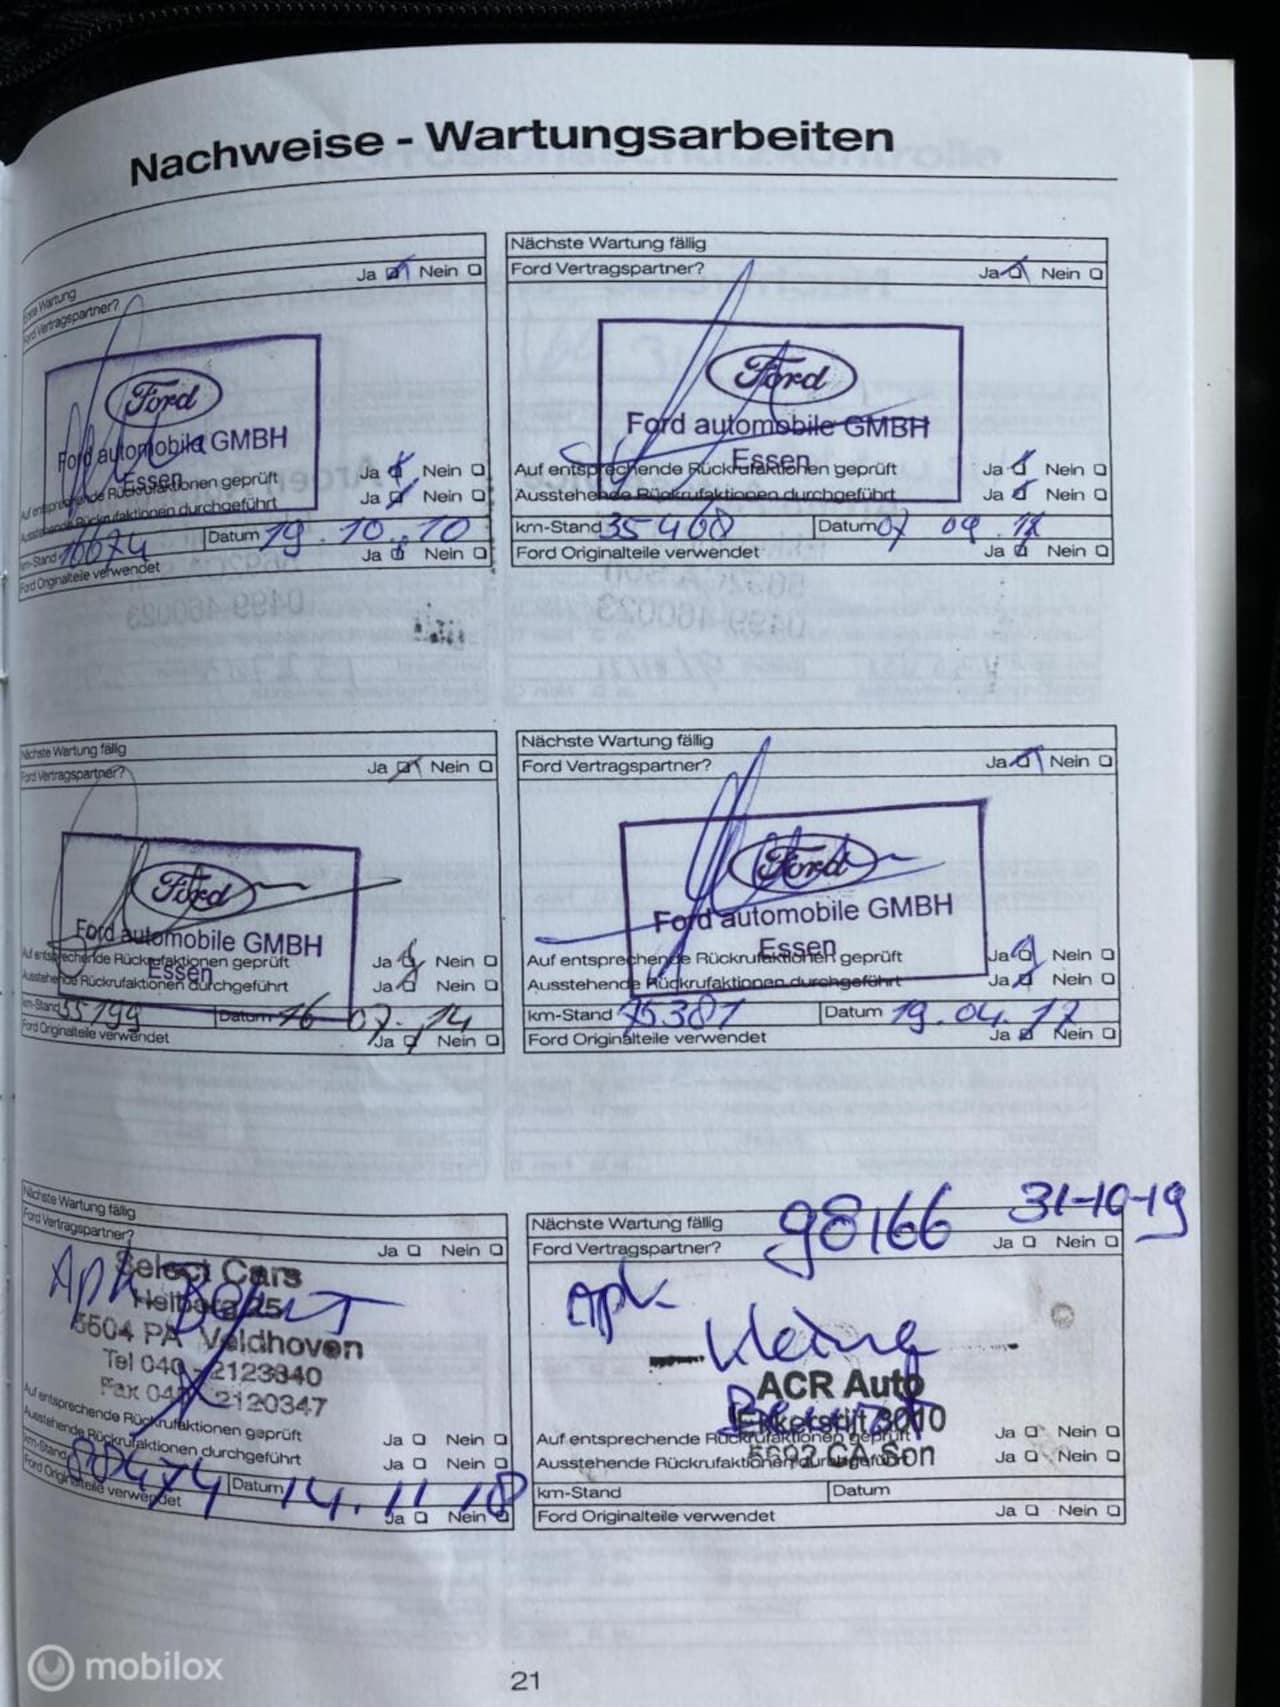 Nachweise - Wartungsarbeiten
Erste Wartung
Ford Vertragspartner? Ja Nein
Ford
Ford automobile GMBH
Essen
Auf entsprechende Rückrufaktionen geprüft Ja Nein
Ausstehende Rückrufaktionen durchgeführt Ja Nein
km-Stand 16674 Datum 19.10.10
Ford Originalteile verwendet Ja Nein
Nächste Wartung fällig
Ford Vertragspartner? Ja Nein
Ford
Ford automobile GMBH
Essen
Auf entsprechende Rückrufaktionen geprüft Ja Nein
Ausstehende Rückrufaktionen durchgeführt Ja Nein
km-Stand 35468 Datum 07 09 .12
Ford Originalteile verwendet Ja Nein
Nächste Wartung fällig
Ford Vertragspartner? Ja Nein
Ford
Ford automobile GMBH
Essen
Auf entsprechende Rückrufaktionen geprüft Ja Nein
Ausstehende Rückrufaktionen durchgeführt Ja Nein
km-Stand 55199 Datum 16 07. 14
Ford Originalteile verwendet Ja Nein
Nächste Wartung fällig
Ford Vertragspartner? Ja Nein
Ford
Ford automobile GMBH
Essen
Auf entsprechende Rückrufaktionen geprüft Ja Nein
Ausstehende Rückrufaktionen durchgeführt Ja Nein
km-Stand 75381 Datum 19.04.17
Ford Originalteile verwendet Ja Nein
Nächste Wartung fällig
Ford Vertragspartner? Ja Nein
Apk Beurt
Select Cars
5504 PA Veldhoven
Tel 040 - 2123840
Fax 040 2120347
Auf entsprechende Rückrufaktionen geprüft Ja Nein
Ausstehende Rückrufaktionen durchgeführt Ja Nein
km-Stand 88474 Datum 14.11 18
Ford Originalteile verwendet Ja Nein
98166 31-10-19
Nächste Wartung fällig
Ford Vertragspartner? Ja Nein
Apk
Kleine
Beurt
ACR Auto
Ekkersrijt 3010
5692 CA Son
Auf entsprechende Rückrufaktionen geprüft Ja Nein
Ausstehende Rückrufaktionen durchgeführt Ja Nein
km-Stand Datum
Ford Originalteile verwendet Ja Nein
21
mobilox